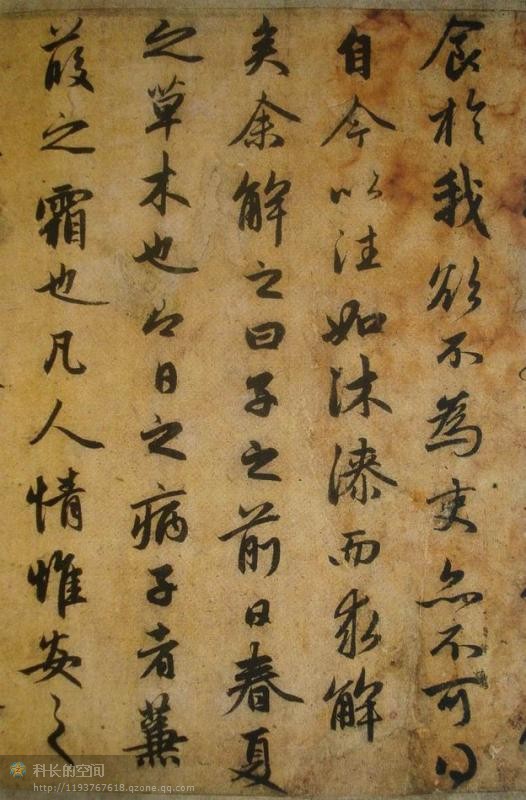 食於我欲不為吏亦不可得
自今以往如沐漆而求解
矣余解之曰子之前日春夏
之草木也今日之病子者蒹
葭之霜也凡人情惟安之
科长的空间
http://1193767618.qzone.qq.com